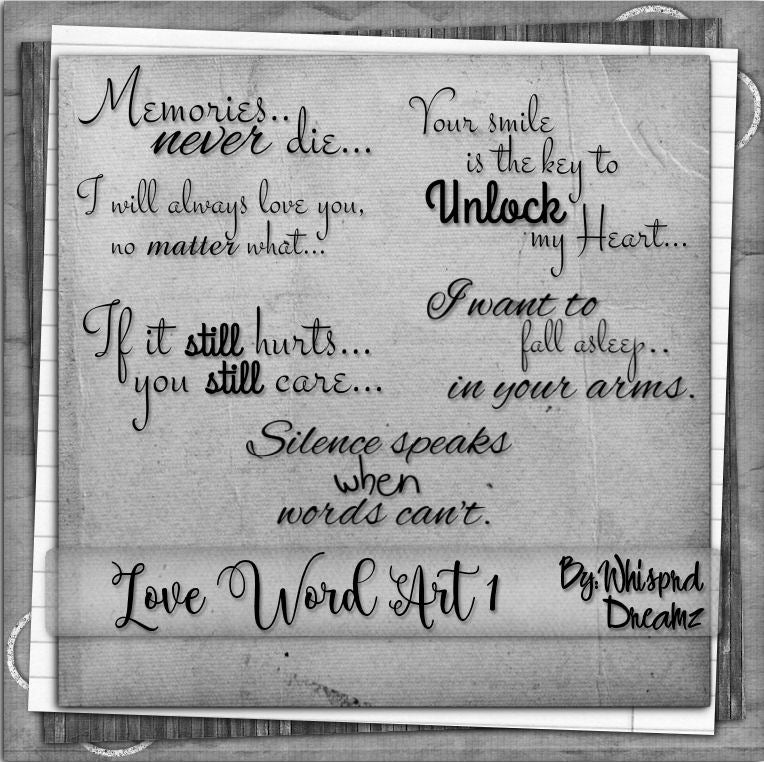 Memories..
never die...
I will always love you,
no matter what...
If it still hurts...
you still care...
Your smile
is the key to
Unlock
my Heart...
I want to
fall asleep..
in your arms.
Silence speaks
when
words can't.
Love Word Art 1
By:Whisprd
Dreamz